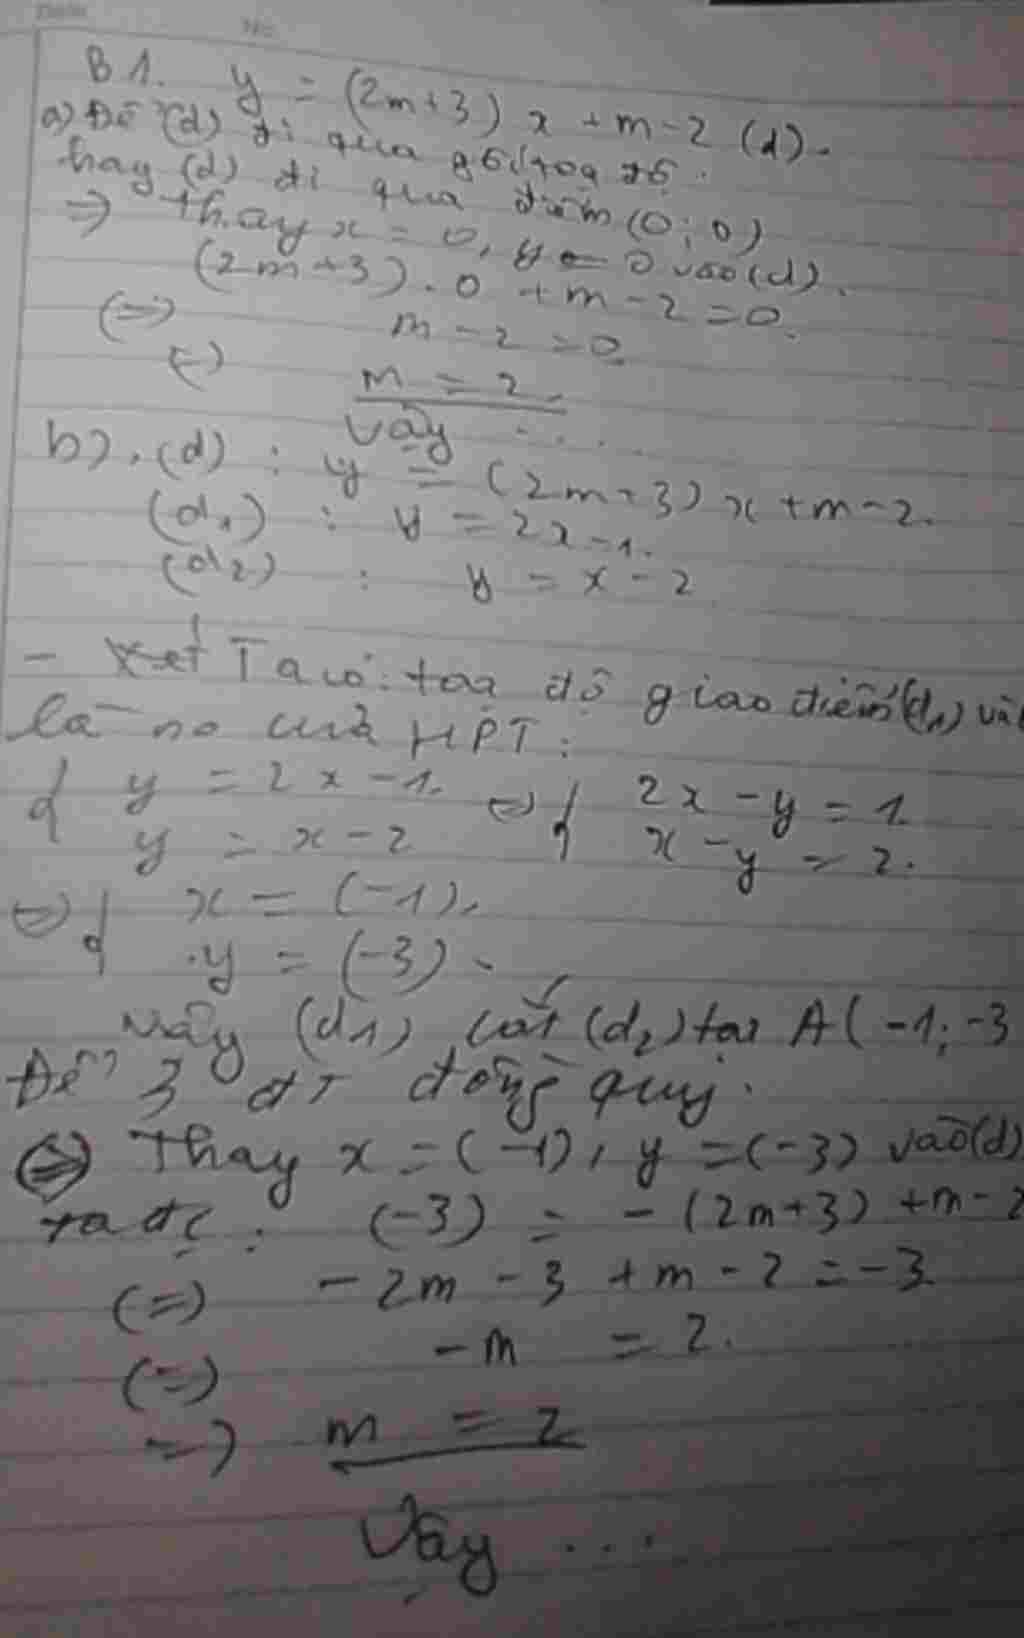 B1. y = (2m+3) x + m - 2 (d).
a) Để (d) đi qua gốc tọa độ.
hay (d) đi qua điểm (0; 0)
=> Thay x = 0, y = 0 vào (d).
(2m+3). 0 + m - 2 = 0.
(=) m - 2 = 0
(=) m = 2.
Vậy ....
b). (d) : y = (2m+3) x + m - 2.
(d1) : y = 2x - 1.
(d2) : y = x - 2
- Ta có: tọa độ giao điểm (d1) và
là no của HPT:
{ y = 2x - 1. (=) { 2x - y = 1
y = x - 2 x - y = 2.
(=) { x = (-1).
y = (-3).
Vậy (d1) cắt (d2) tại A(-1; -3
Để 3 đt đồng quy.
(=) Thay x = (-1), y = (-3) vào (d)
ta đc: (-3) = - (2m+3) + m - 2
(=) - 2m - 3 + m - 2 = -3
(=) - m = 2.
=) m = 2
Vậy ...